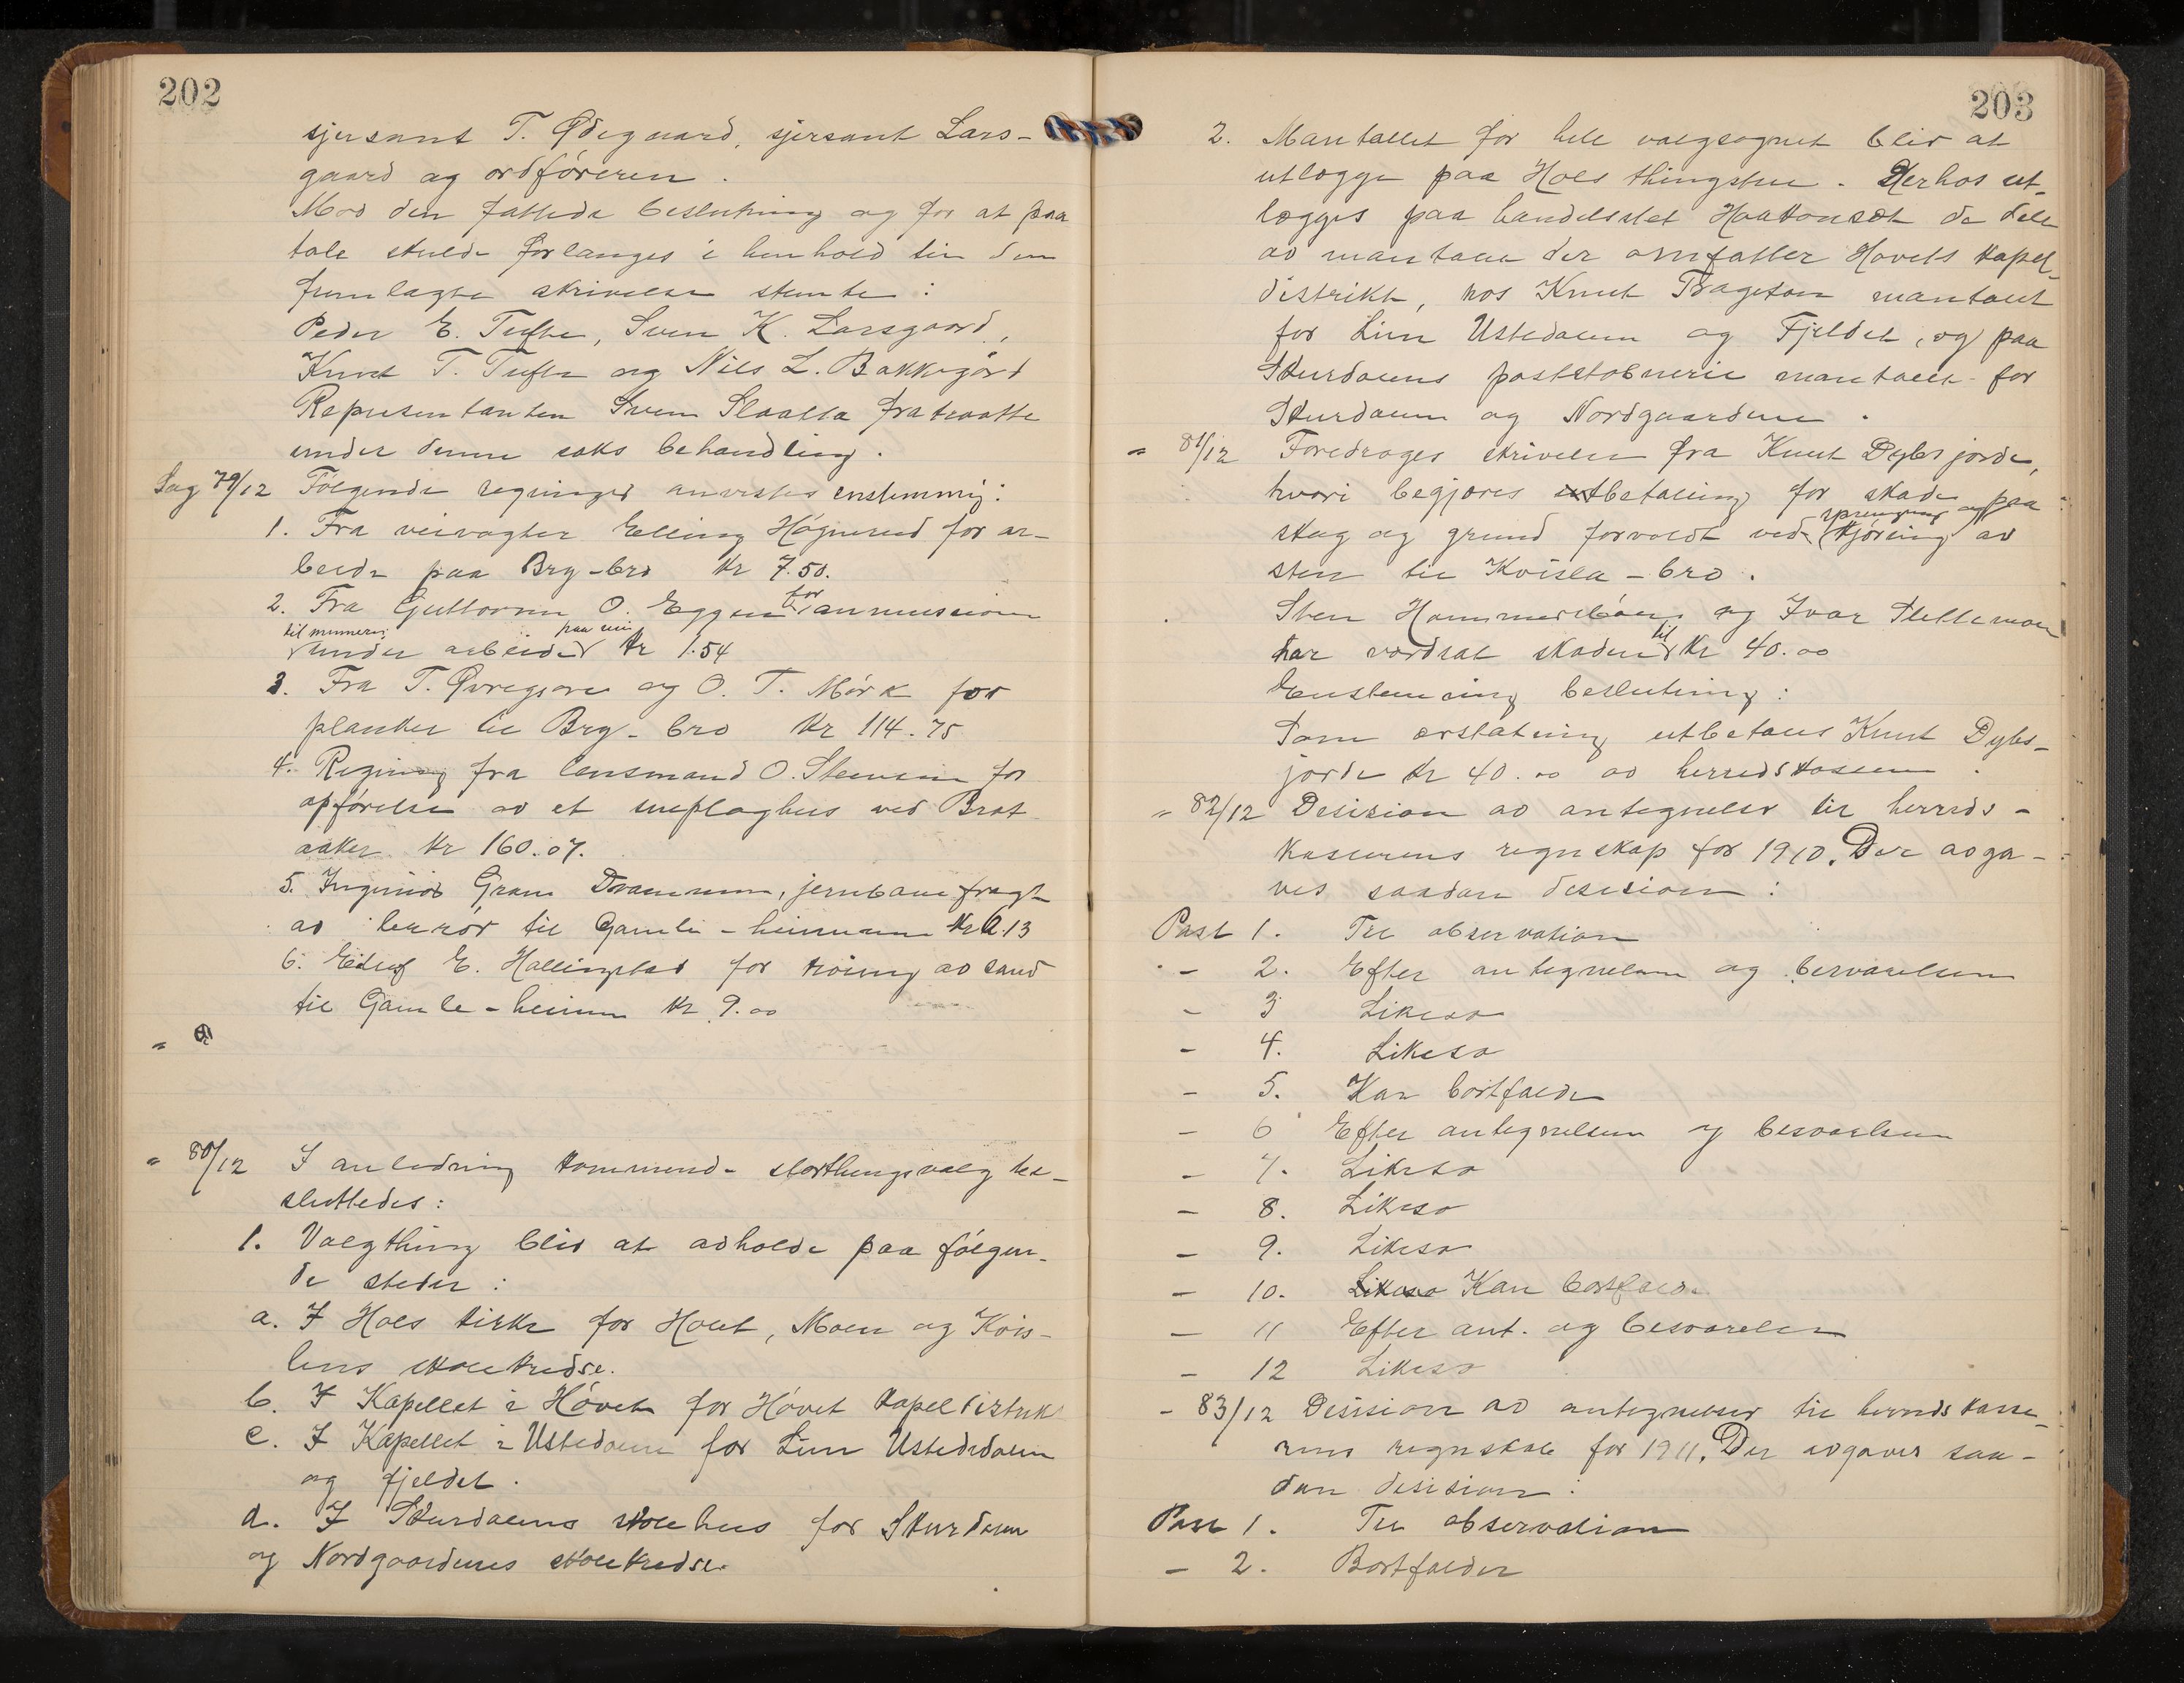 202
sjersant T. Ødegaard, sjersant Lars-
gaard og ordføreren.
Mod den fattede beslutning og for at paa
tale skulde forlanges i henhold til den
fremlagte skrivelse stemte:
Peder E. Tufte, Sven K. Larsgaard,
Knut T. Tufte og Nils L. Bakkegård
Representanten Sven Slaatta fratraatte
under denne saks behandling.
Sag 79/12 Følgende regninger anvistes enstemmig:
1. Fra veivogter Elling Høgnerud for ar-
beide paa Bry-bro kr 7.50.
2. Fra Guttorm O. Eggen for ammunition
til minering under arbeider paa vei kr 1.54
3. Fra T. Øvregjore og O. T. Mørk for
planker til Bry-bro kr 114.75
4. Regning fra lensmand O. Stensen for
opførelse av et sneploghus ved Brat
aaker kr 160.07.
5. Ingeniør Gram Drammen, jernbanefragt
av lerrør til Gamle-heimen kr 2.13
6. Eiluf E. Hallingstad for kjøring av sand
til Gamle-heimen kr 9.00
"
" 80/12 I anledning kommende storthingsvalg be-
sluttedes:
1. Valgthing blir at avholde paa følgen-
de steder:
a. I Hols kirke for Holet, Moen og Kvis-
lens skolekredse.
b. I Kapellet i Høvet for Høvet kapeldistrikt
c. I Kapellet i Ustedalen for Lien Ustedalen
og fjeldet.
d. I Skurdalens skolehus for Skurdalen
og Nordgaardenes skolekredse.
203
2. Mantallet for hele valgsognet blir at
utlegge paa Hols thingstue. Derhos ut-
legges paa handelsstet Haatonset de dele
av mantallet der omfatter Hovets kapel-
distrikt, hos Knut Trageton mantallet
for Lien Ustedalen og Fjeldet, og paa
Skurdalens poststobneri mantallet for
Skurdalen og Nordgaardene.
" 81/12 Foredroges skrivelse fra Knut Dybsjorde,
hvori begjæres utbetaling for skade paa
skog og grund forvoldt ved sprengning og kjøring av
sten til Kvisla-bro.
Sten Hammersbøen og Ivar Slettemoen
har værdsat skaden til kr 40.00
Enstemmig beslutning:
Som erstatning utbetales Knut Dybs-
jorde kr 40.00 av herredskassen.
" 82/12 Desision av antegnelser til herreds-
kasserens regnskap for 1910. Der avga-
ves saadan desision:
Post 1. Til observation
- 2. Efter antegnelsen og besvarelsen
- 3 Likesa
- 4. Likesa
- 5. Kan bortfalde
- 6 Efter antegnelsen og besvarelsen
- 7. Likesa
- 8. Likesa
- 9. Likesa
- 10. Likesa Kan bortfalde
- 11 Efter ant. og besvarelsen
- 12 Likesa
- 83/12 Desision av antegnelser til herredskasse-
rens regnskab for 1911. Der avgaves saa-
dan desision:
Post 1. Til observation
- 2. Bortfalder